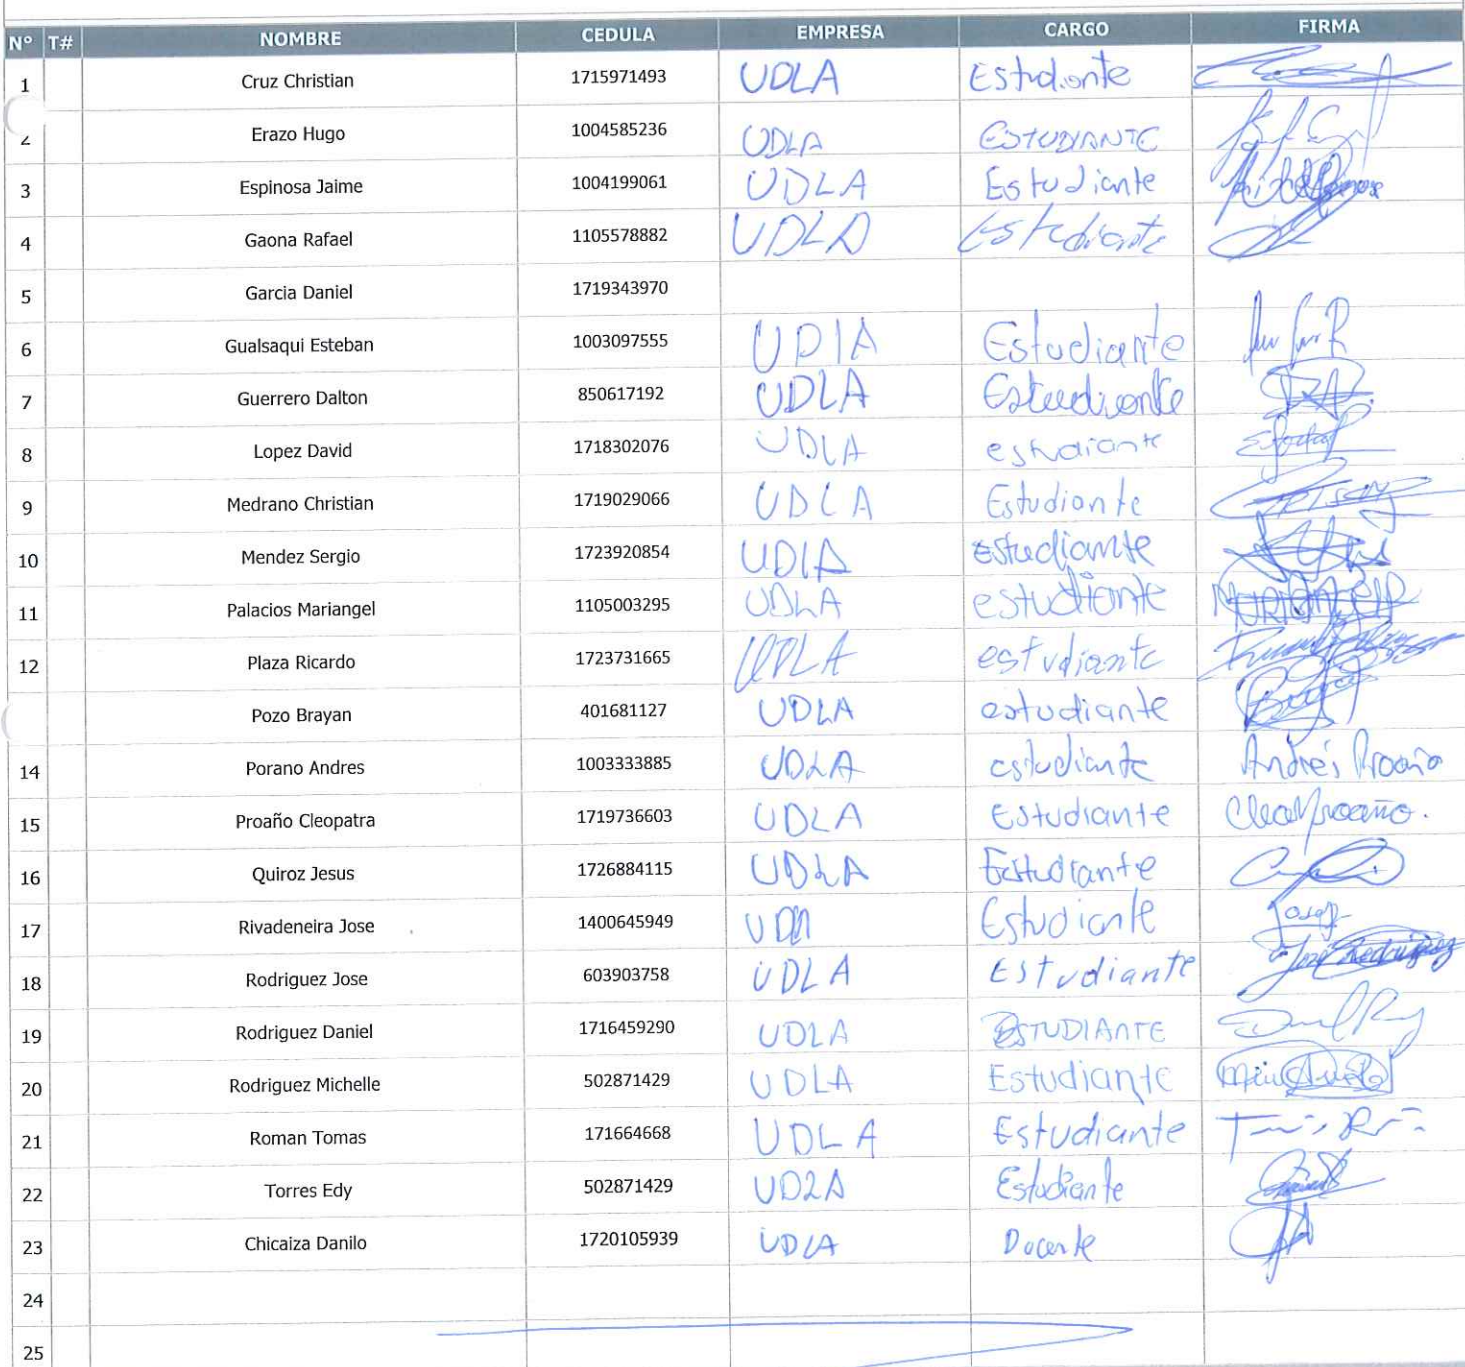 N° T# NOMBRE CEDULA EMPRESA CARGO FIRMA
1 Cruz Christian 1715971493 UDLA Estudiante
2 Erazo Hugo 1004585236 UDLA ESTUDIANTE
3 Espinosa Jaime 1004199061 UDLA Estudiante
4 Gaona Rafael 1105578882 UDLA Estudiante
5 Garcia Daniel 1719343970
6 Gualsaqui Esteban 1003097555 UDLA Estudiante
7 Guerrero Dalton 850617192 UDLA Estudiante
8 Lopez David 1718302076 UDLA estudiante
9 Medrano Christian 1719029066 UDLA Estudiante
10 Mendez Sergio 1723920854 UDLA estudiante
11 Palacios Mariangel 1105003295 UDLA estudiante
12 Plaza Ricardo 1723731665 UDLA estudiante
Pozo Brayan 401681127 UDLA estudiante
14 Porano Andres 1003333885 UDLA estudiante Andrés Proaño
15 Proaño Cleopatra 1719736603 UDLA Estudiante Cleo Proaño.
16 Quiroz Jesus 1726884115 UDLA Estudiante
17 Rivadeneira Jose 1400645949 Estudiante
18 Rodriguez Jose 603903758 UDLA Estudiante José Rodríguez
19 Rodriguez Daniel 1716459290 UDLA ESTUDIANTE
20 Rodriguez Michelle 502871429 UDLA Estudiante
21 Roman Tomas 171664668 UDLA Estudiante
22 Torres Edy 502871429 UDLA Estudiante
23 Chicaiza Danilo 1720105939 UDLA Docente
24
25